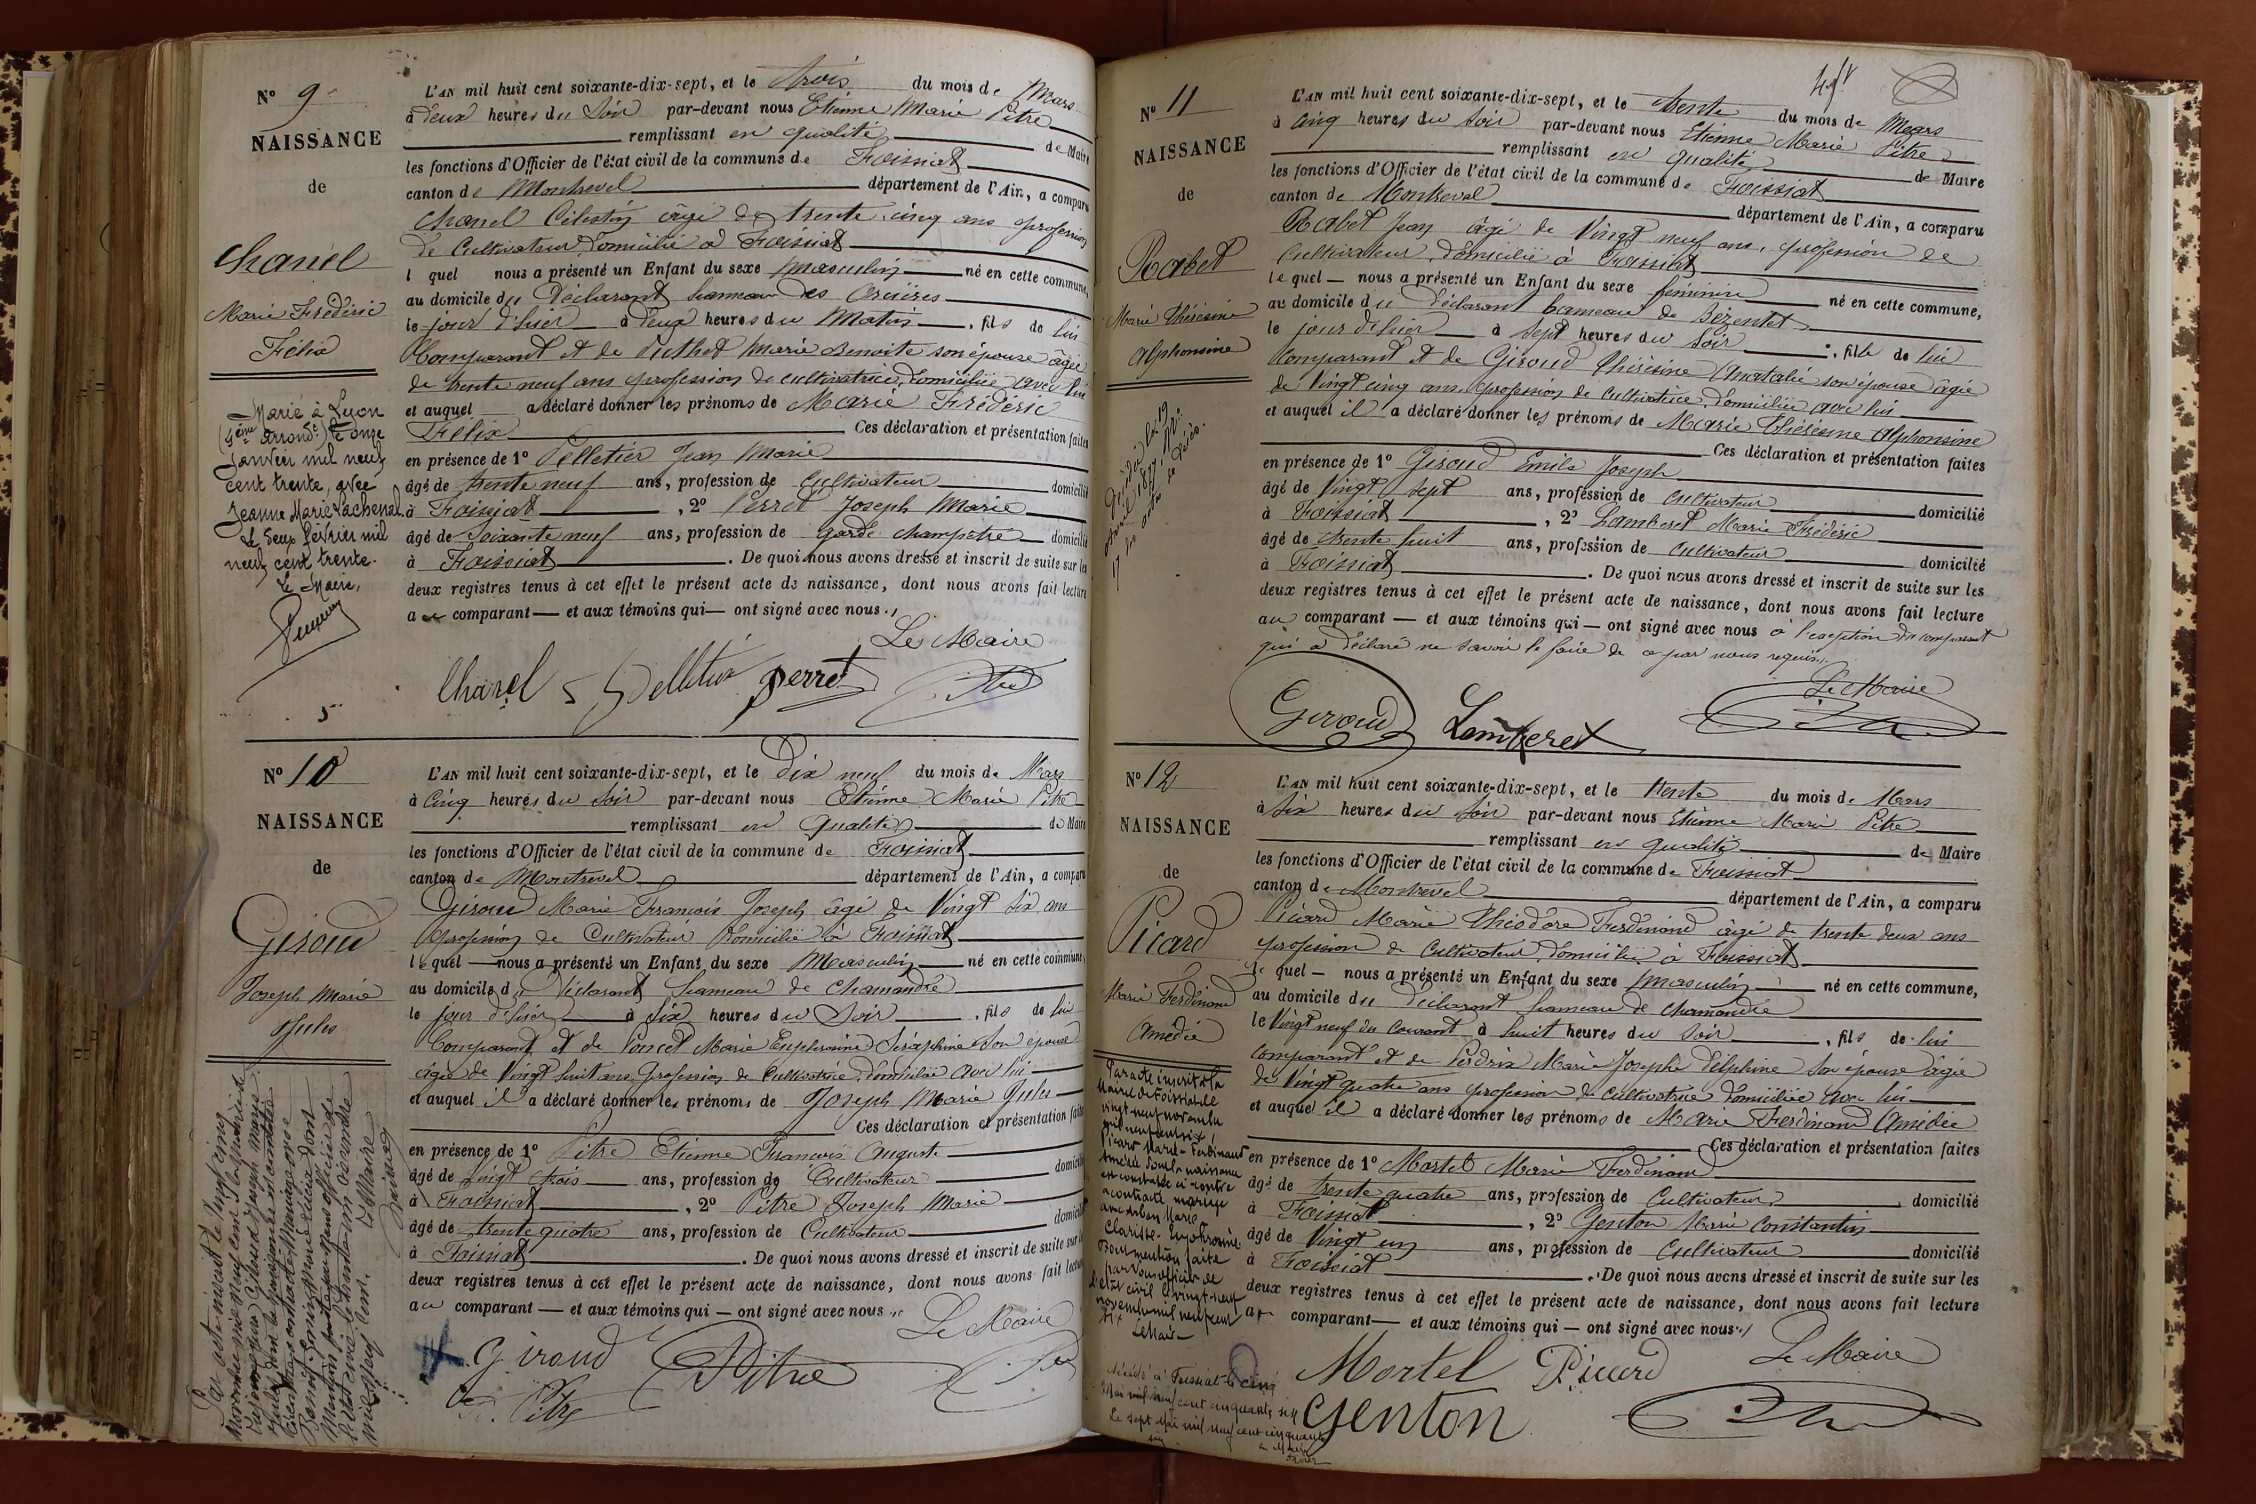 N° 9
NAISSANCE
de
Chanel
Marie Frédéric
Félix
Marié à Lyon
(4ème arrondt) le onze
Janvier mil neuf
cent trente, avec
Jeanne Marie Lachenal.
Le deux février mil
neuf cent trente.
Le Maire,
L'AN mil huit cent soixante-dix-sept, et le trois du mois de Mars
à deux heures du Soir par-devant nous Etienne Marie Pitre
remplissant en qualité de Maire
les fonctions d'Officier de l'état civil de la commune de Foissiat
canton de Montrevel département de l'Ain, a comparu
Chanel Célestin âgé de trente cinq ans profession
de Cultivateur, domicilié à Foissiat
l quel nous a présenté un Enfant du sexe Masculin né en cette commune,
au domicile du Déclarant hameau des
le jour d'hier à deux heures du Matin, fils de lui
Comparant et de Puthet Marie Benoite son épouse âgée
de trente neuf ans profession de cultivatrice, domiciliée avec lui
et auquel a déclaré donner les prénoms de Marie Frédéric
Félix Ces déclaration et présentation faites
en présence de 1° Pelletier Jean Marie
âgé de trente neuf ans, profession de Cultivateur domicilié
à Foissiat, 2° Perret Joseph Marie
âgé de Soixante neuf ans, profession de garde champêtre domicilié
à Foissiat. De quoi nous avons dressé et inscrit de suite sur les
deux registres tenus à cet effet le présent acte de naissance, dont nous avons fait lecture
au comparant et aux témoins qui ont signé avec nous.
Le Maire
Chanel Pelletier Perret Pitre
5
N° 10
NAISSANCE
de
Giroud
Joseph Marie
Jules
L'AN mil huit cent soixante-dix-sept, et le Dix neuf du mois de Mars
à Cinq heures du Soir par-devant nous Etienne Marie Pitre
remplissant en qualité de Maire
les fonctions d'Officier de l'état civil de la commune de Foissiat
canton de Montrevel département de l'Ain, a comparu
Giroud Marie François Joseph âgé de Vingt Six ans
profession de Cultivateur Domicilié à Foissiat
le quel nous a présenté un Enfant du sexe Masculin né en cette commune,
au domicile du Déclarant hameau de Chamandré
le jour d'hier à Six heures du Soir, fils de lui
Comparant et de Poncet Marie Euphrosine Séraphine Son épouse
âgée de Vingt huit ans, profession de Cultivatrice, domiciliée avec lui
et auquel il a déclaré donner les prénoms de Joseph Marie Jules
Ces déclaration et présentation faites
en présence de 1° Pitre Etienne François Auguste
âgé de Vingt trois ans, profession de Cultivateur domicilié
à Foissiat, 2° Pitre Joseph Marie
âgé de trente quatre ans, profession de Cultivateur domicilié
à Foissiat. De quoi nous avons dressé et inscrit de suite sur les
deux registres tenus à cet effet le présent acte de naissance, dont nous avons fait lecture
au comparant et aux témoins qui ont signé avec nous
Le Maire
Giroud Pitre
Pitre
N° 11
NAISSANCE
de
Rabet
Marie Thérésine
Alphonsine
Décédé le 19
avril 1877. N°
17 des actes de décès.
L'AN mil huit cent soixante-dix-sept, et le trente du mois de Mars
à Cinq heures du Soir par-devant nous Etienne Marie Pitre
remplissant en qualité de Maire
les fonctions d'Officier de l'état civil de la commune de Foissiat
canton de Montrevel département de l'Ain, a comparu
Rabet Jean âgé de Vingt neuf ans, profession de
Cultivateur, domicilié à Foissiat
le quel nous a présenté un Enfant du sexe féminin né en cette commune,
au domicile du déclarant hameau de Bézentet
le jour d'hier à Sept heures du Soir, fille de lui
Comparant et de Giroud Thérésine Anatalie son épouse âgée
de Vingt cinq ans, profession de Cultivatrice, domiciliée avec lui
et auquel il a déclaré donner les prénoms de Marie Thérésine Alphonsine
Ces déclaration et présentation faites
en présence de 1° Giroud Emile Joseph
âgé de Vingt Sept ans, profession de Cultivateur domicilié
à Foissiat, 2° Lamberet Marie Frédéric
âgé de trente huit ans, profession de Cultivateur domicilié
à Foissiat. De quoi nous avons dressé et inscrit de suite sur les
deux registres tenus à cet effet le présent acte de naissance, dont nous avons fait lecture
au comparant et aux témoins qui ont signé avec nous à l'exception du comparant
qui a déclaré ne savoir le faire de ce par nous requis.
Le Maire
Giroud Lamberet
N° 12
NAISSANCE
de
Picard
Marie Ferdinand
Amédée
L'AN mil huit cent soixante-dix-sept, et le trente du mois de Mars
à Six heures du Soir par-devant nous Etienne Marie Pitre
remplissant en qualité de Maire
les fonctions d'Officier de l'état civil de la commune de Foissiat
canton de Montrevel département de l'Ain, a comparu
Picard Marie Théodore Ferdinand âgé de trente deux ans
profession de Cultivateur, domicilié à Foissiat
le quel nous a présenté un Enfant du sexe Masculin né en cette commune,
au domicile du déclarant hameau de Chamandré
le Vingt neuf du Courant à huit heures du Soir, fils de lui
comparant et de Perdrix Marie Josephe Delphine Son épouse âgée
de Vingt quatre ans profession de Cultivatrice domiciliée avec lui
et auquel il a déclaré donner les prénoms de Marie Ferdinand Amédée
Ces déclaration et présentation faites
en présence de 1° Mortel Marie Ferdinand
âgé de trente quatre ans, profession de Cultivateur domicilié
à Foissiat, 2° Genton Marie Constantin
âgé de Vingt un ans, profession de Cultivateur domicilié
à Foissiat. De quoi nous avons dressé et inscrit de suite sur les
deux registres tenus à cet effet le présent acte de naissance, dont nous avons fait lecture
au comparant et aux témoins qui ont signé avec nous.
Le Maire
Mortel Picard
Genton